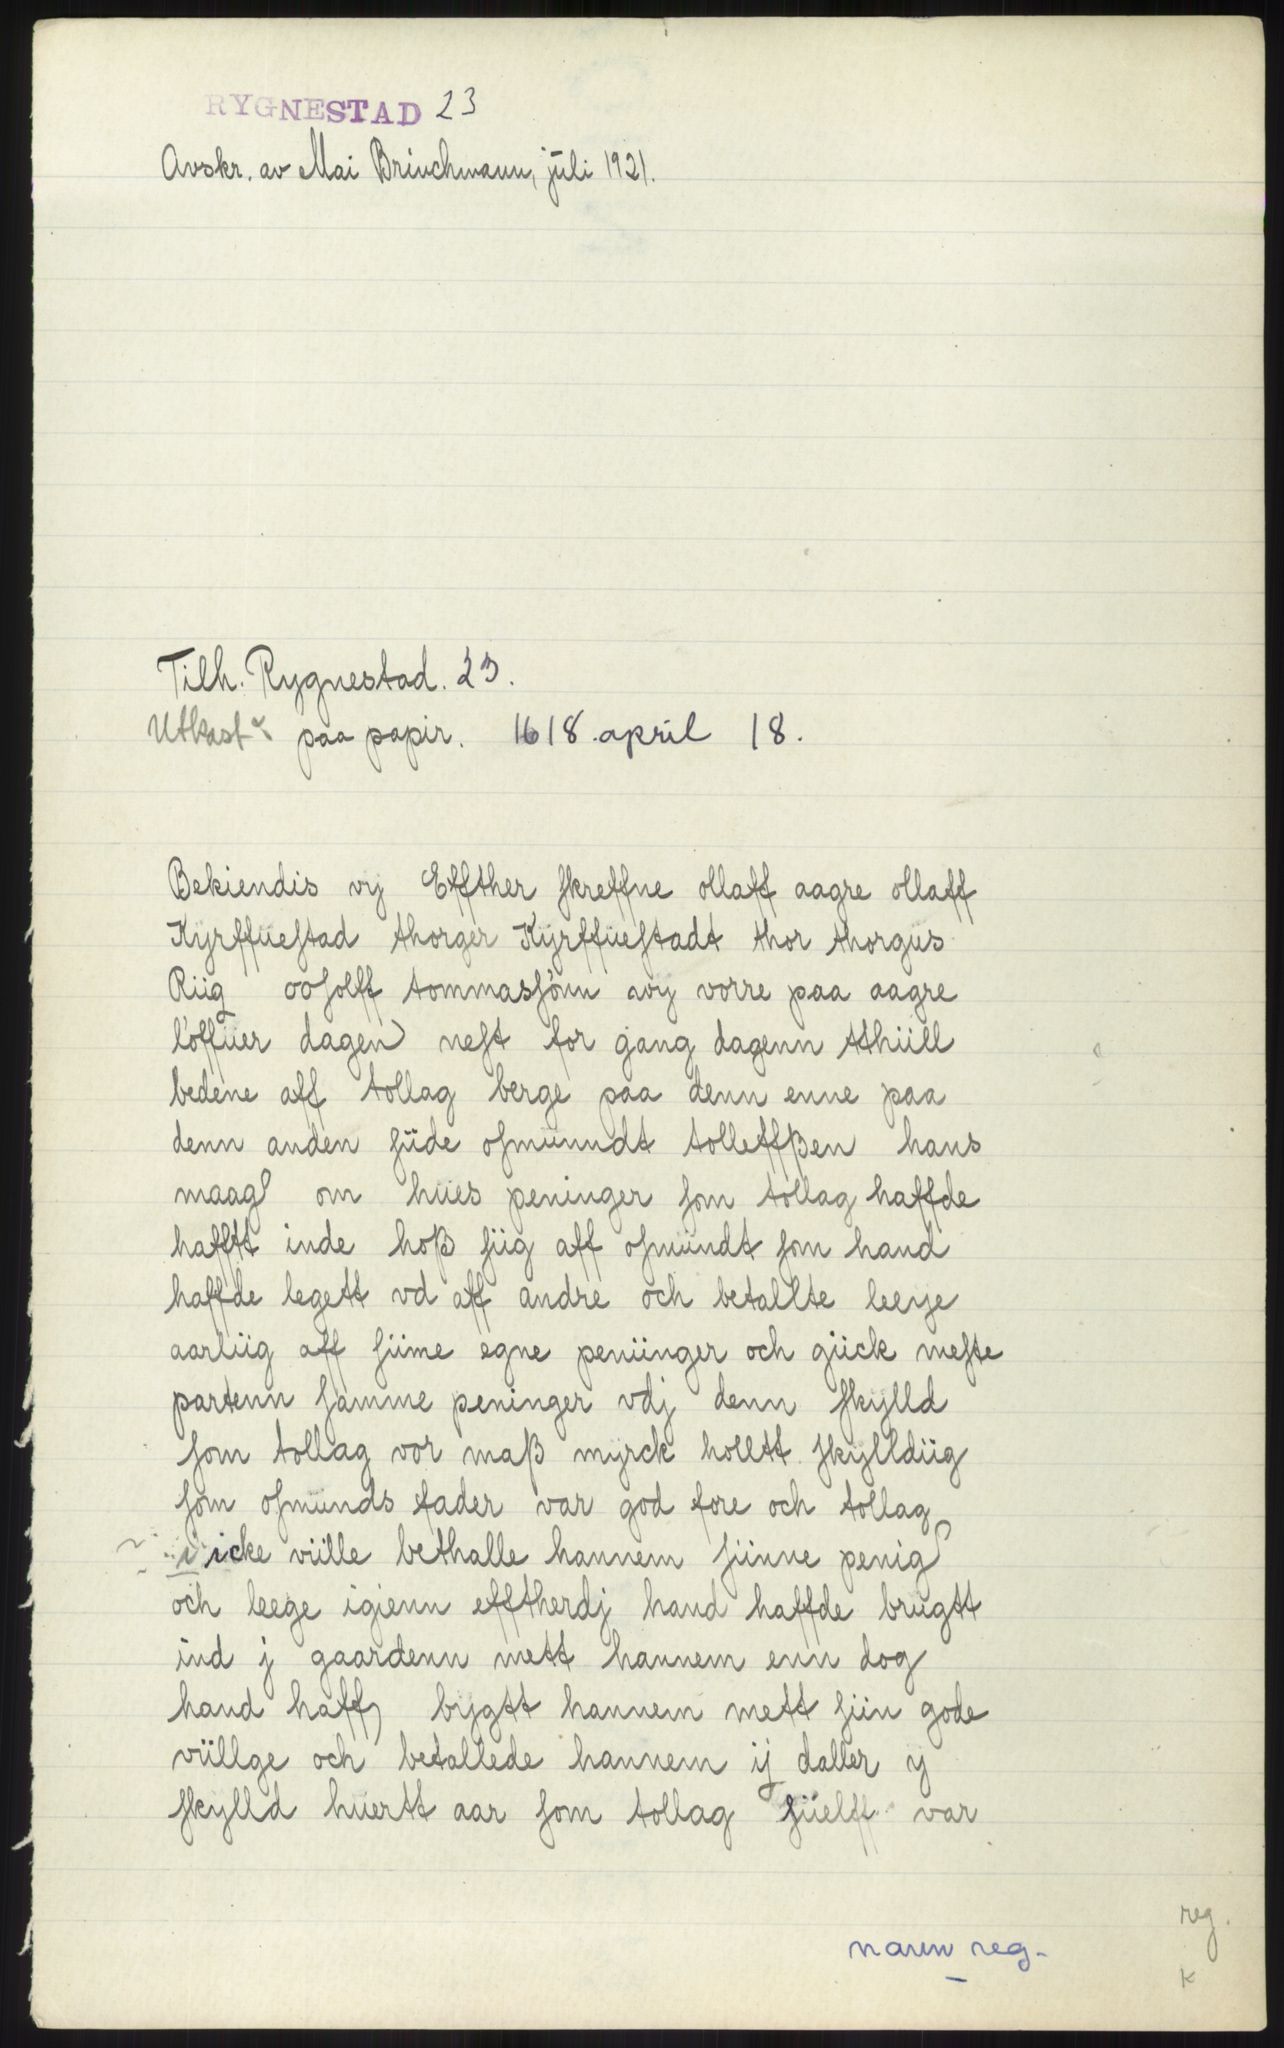 RYGNESTAD 23
Avskr. av Mai Brinchmann, juli 1921.
Tilh. Rygnestad. 23.
Utkast paa papir. 1618. april 18.
Bekiendis vij Effther skreffne ollaff aagre ollaff
Kyrffüestad thorger Kyrffüestadt thor thorgus
Riig oosolff tommassønn wij vorre paa aagre
løffüer dagen nest for gang dagenn tthüll
bedene aff tollag berge paa denn enne paa
denn anden süde osmunndt tolleffßen hans
maag om hües peninger som tollag haffde
hafftt inde hoß süg aff osmundt som hand
haffde legett vd aff andre och betallte leeye
aarlüg aff süne egne penünger och gück meste
partenn samme peninger vdj denn skylld
som tollag vor maß myrck holltt skylldüg
som osmunds fader var god fore och tollag
icke vülle bethalle hannem sünne penig
och leege igienn efftherdj hand haffde brugtt
ind j gaardenn mett hannem enn dog
hand haff bygtt hannem mett sün gode
vüllge och betallede hannem ij daller y
skylld huertt aar som tollag süelff var
navn reg.
reg.
K